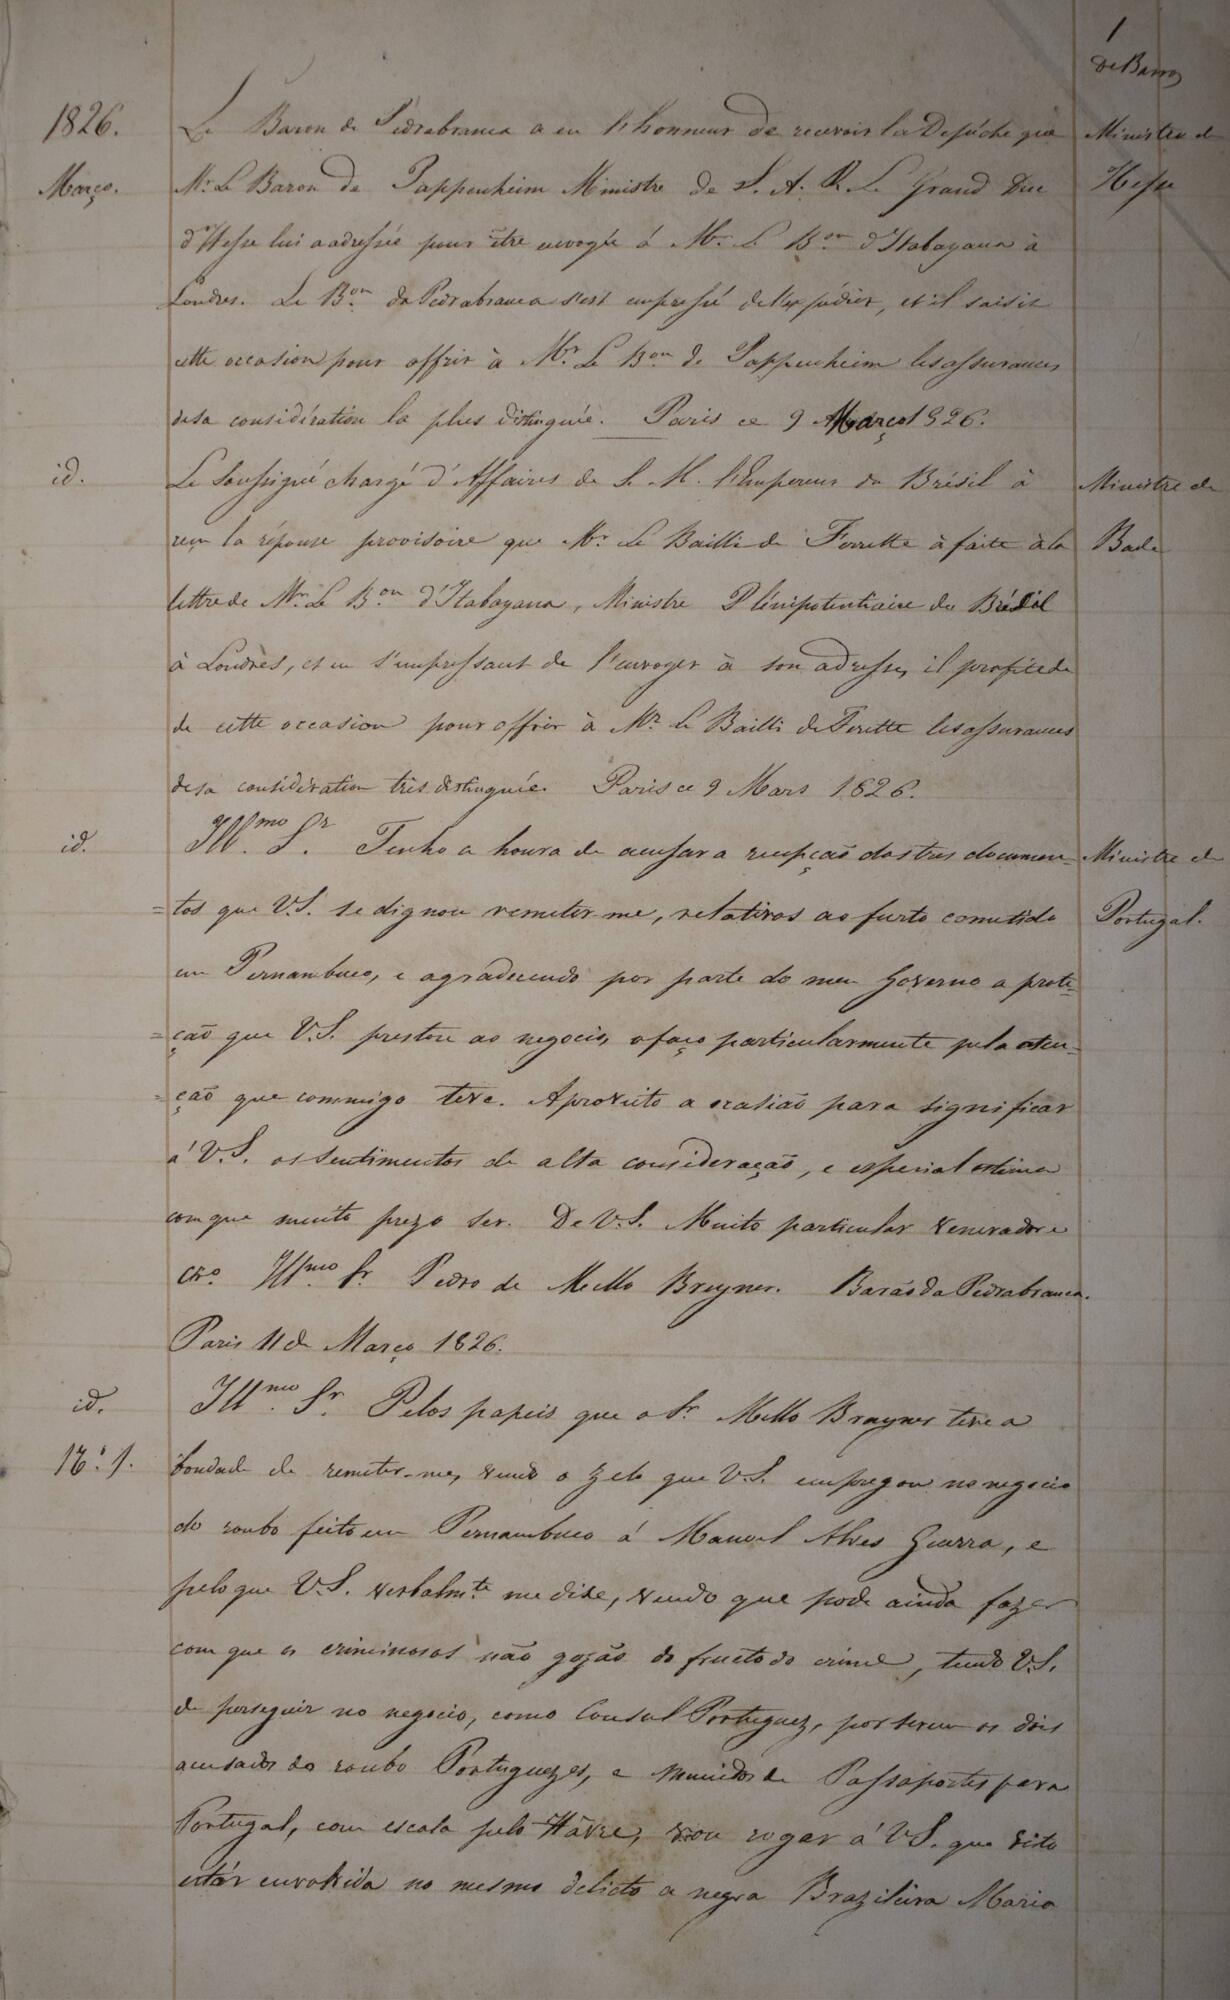 1
de Barros
1826.
Março.
Le Baron de Pedrabranca a eu l'honneur de recevoir la Depêche que
Mr. Le Baron de Pappenheim Ministre de S. A. R. Le Grand Duc
d'Hesse lui a adressée pour être envoyée à Mr. Le Bon. d'Itabayana à
Londres. Le Bon. da Pedrabranca s'est empressé de l'expédier, et il saisit
cette occasion pour offrir à Mr. Le Bon. de Pappenheim les assurances
de sa considération la plus distinguée. Paris ce 9 Março 1826.
Ministre de
Hesse
id.
Le Soussigné chargé d'Affaires de S. M. l'Empereur du Brésil à
reçu la réponse provisoire que Mr. Le Bailli de Ferrette à faite à la
lettre de Mr. Le Bon. d'Itabayana, Ministre Plénipotentiaire du Brésil
à Londres, et en s'empressant de l'envoyer à son adresse, il profite de
de cette occasion pour offrir à Mr. Le Bailli de Ferette les assurances
de sa considération très distinguée. Paris ce 9 Mars 1826.
Ministre de
Bade
id.
Illmo. Sr. Tenho a honra de accusar a recepção dos tres documen-
=tos que V.S. se dignou remeter-me, relativos ao furto cometido
em Pernambuco, e agradecendo por parte do meu Governo a prote=
=ção que V.S. prestou ao negocio, o faço particularmente pela aten-
=ção que commigo teve. Aproveito a ocasião para significar
á V.S. os sentimentos de alta consideração, e especial estima
com que muito prezo ser. De V.S. Muito particular Venerador e
cro. Illmo. Sr. Pedro de Mello Breyner. Barão da Pedrabranca.
Paris 11 de Março 1826.
Ministre de
Portugal.
id.
Nº. 1.
Illmo. Sr. Pelos papeis que o Sr. Mello Brayner teve a
bondade de remeter-me, vendo o zelo que V.S. empregou no negocio
do roubo feito em Pernambuco á Manoel Alves Guerra, e
pelo que V.S. verbalmte. me disse, vendo que pode ainda fazer
com que os criminosos não gozão do fructo do crime, tendo V.S.
de perseguir no negocio, como Consul Portuguez, por serem os dois
acusados do roubo Portuguezes, e munidos de Passaportes para
Portugal, com escala pelo Hâvre, vou rogar á V.S. que visto
estár envolvida no mesmo delicto a negra Brazileira Maria